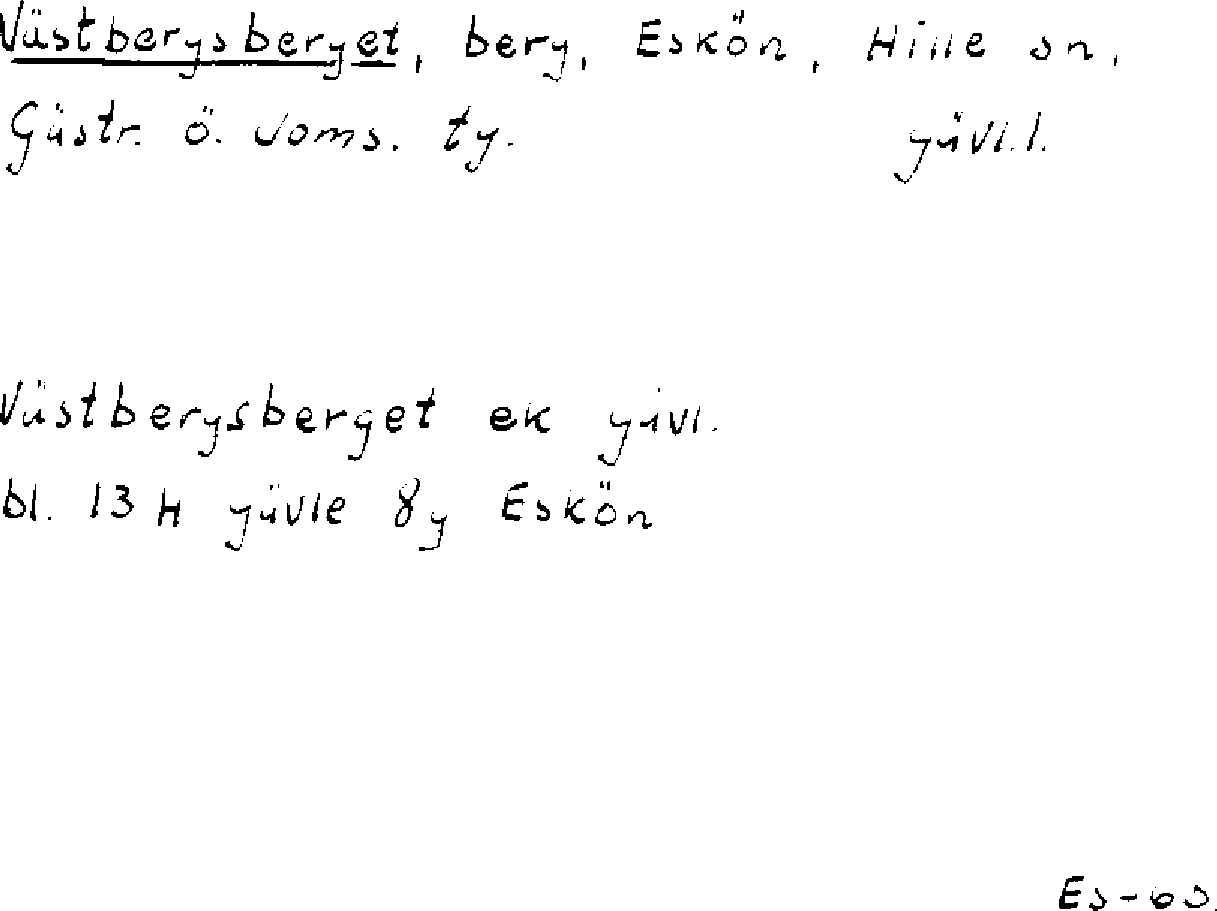 Västbergsberget, berg, Eskön, Hille sn,
Gästr. ö. doms. tg. gävl.l.
Västbergsberget ek gävl.
bl. 13 H gävle 8g Eskön